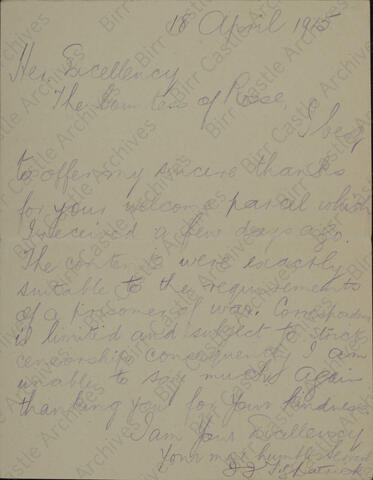 18 April 1915
Her Excellency
The Countess of Rosse,
I beg
to offer my sincere thanks
for your welcome parcel which
I received a few days ago.
The contents were exactly
suitable to the requirements
of a prisoner of war. Correspondence
is limited and subject to strict
censorship consequently I am
unable to say much. Again
thanking you for your kindness
I am Your Excellency
Your most humble servant
J J Fitzpatrick
Birr Castle Archives